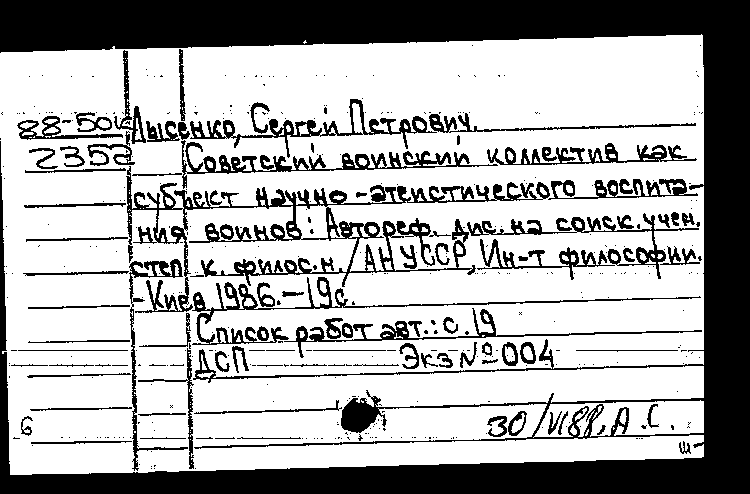 88-50к Лысенко, Сергей Петрович.
2352 Советский воинский коллектив как
субъект научно-атеистического воспита-
ния воинов: Автореф. дис. на соиск. учен.
степ. к. филос. н. / АН УССР, Ин-т философии.
-Киев, 1986.-19с.
Список работ авт.: с. 19
ДСП Экз № 004
6 30/VI88, А.С.
ш-